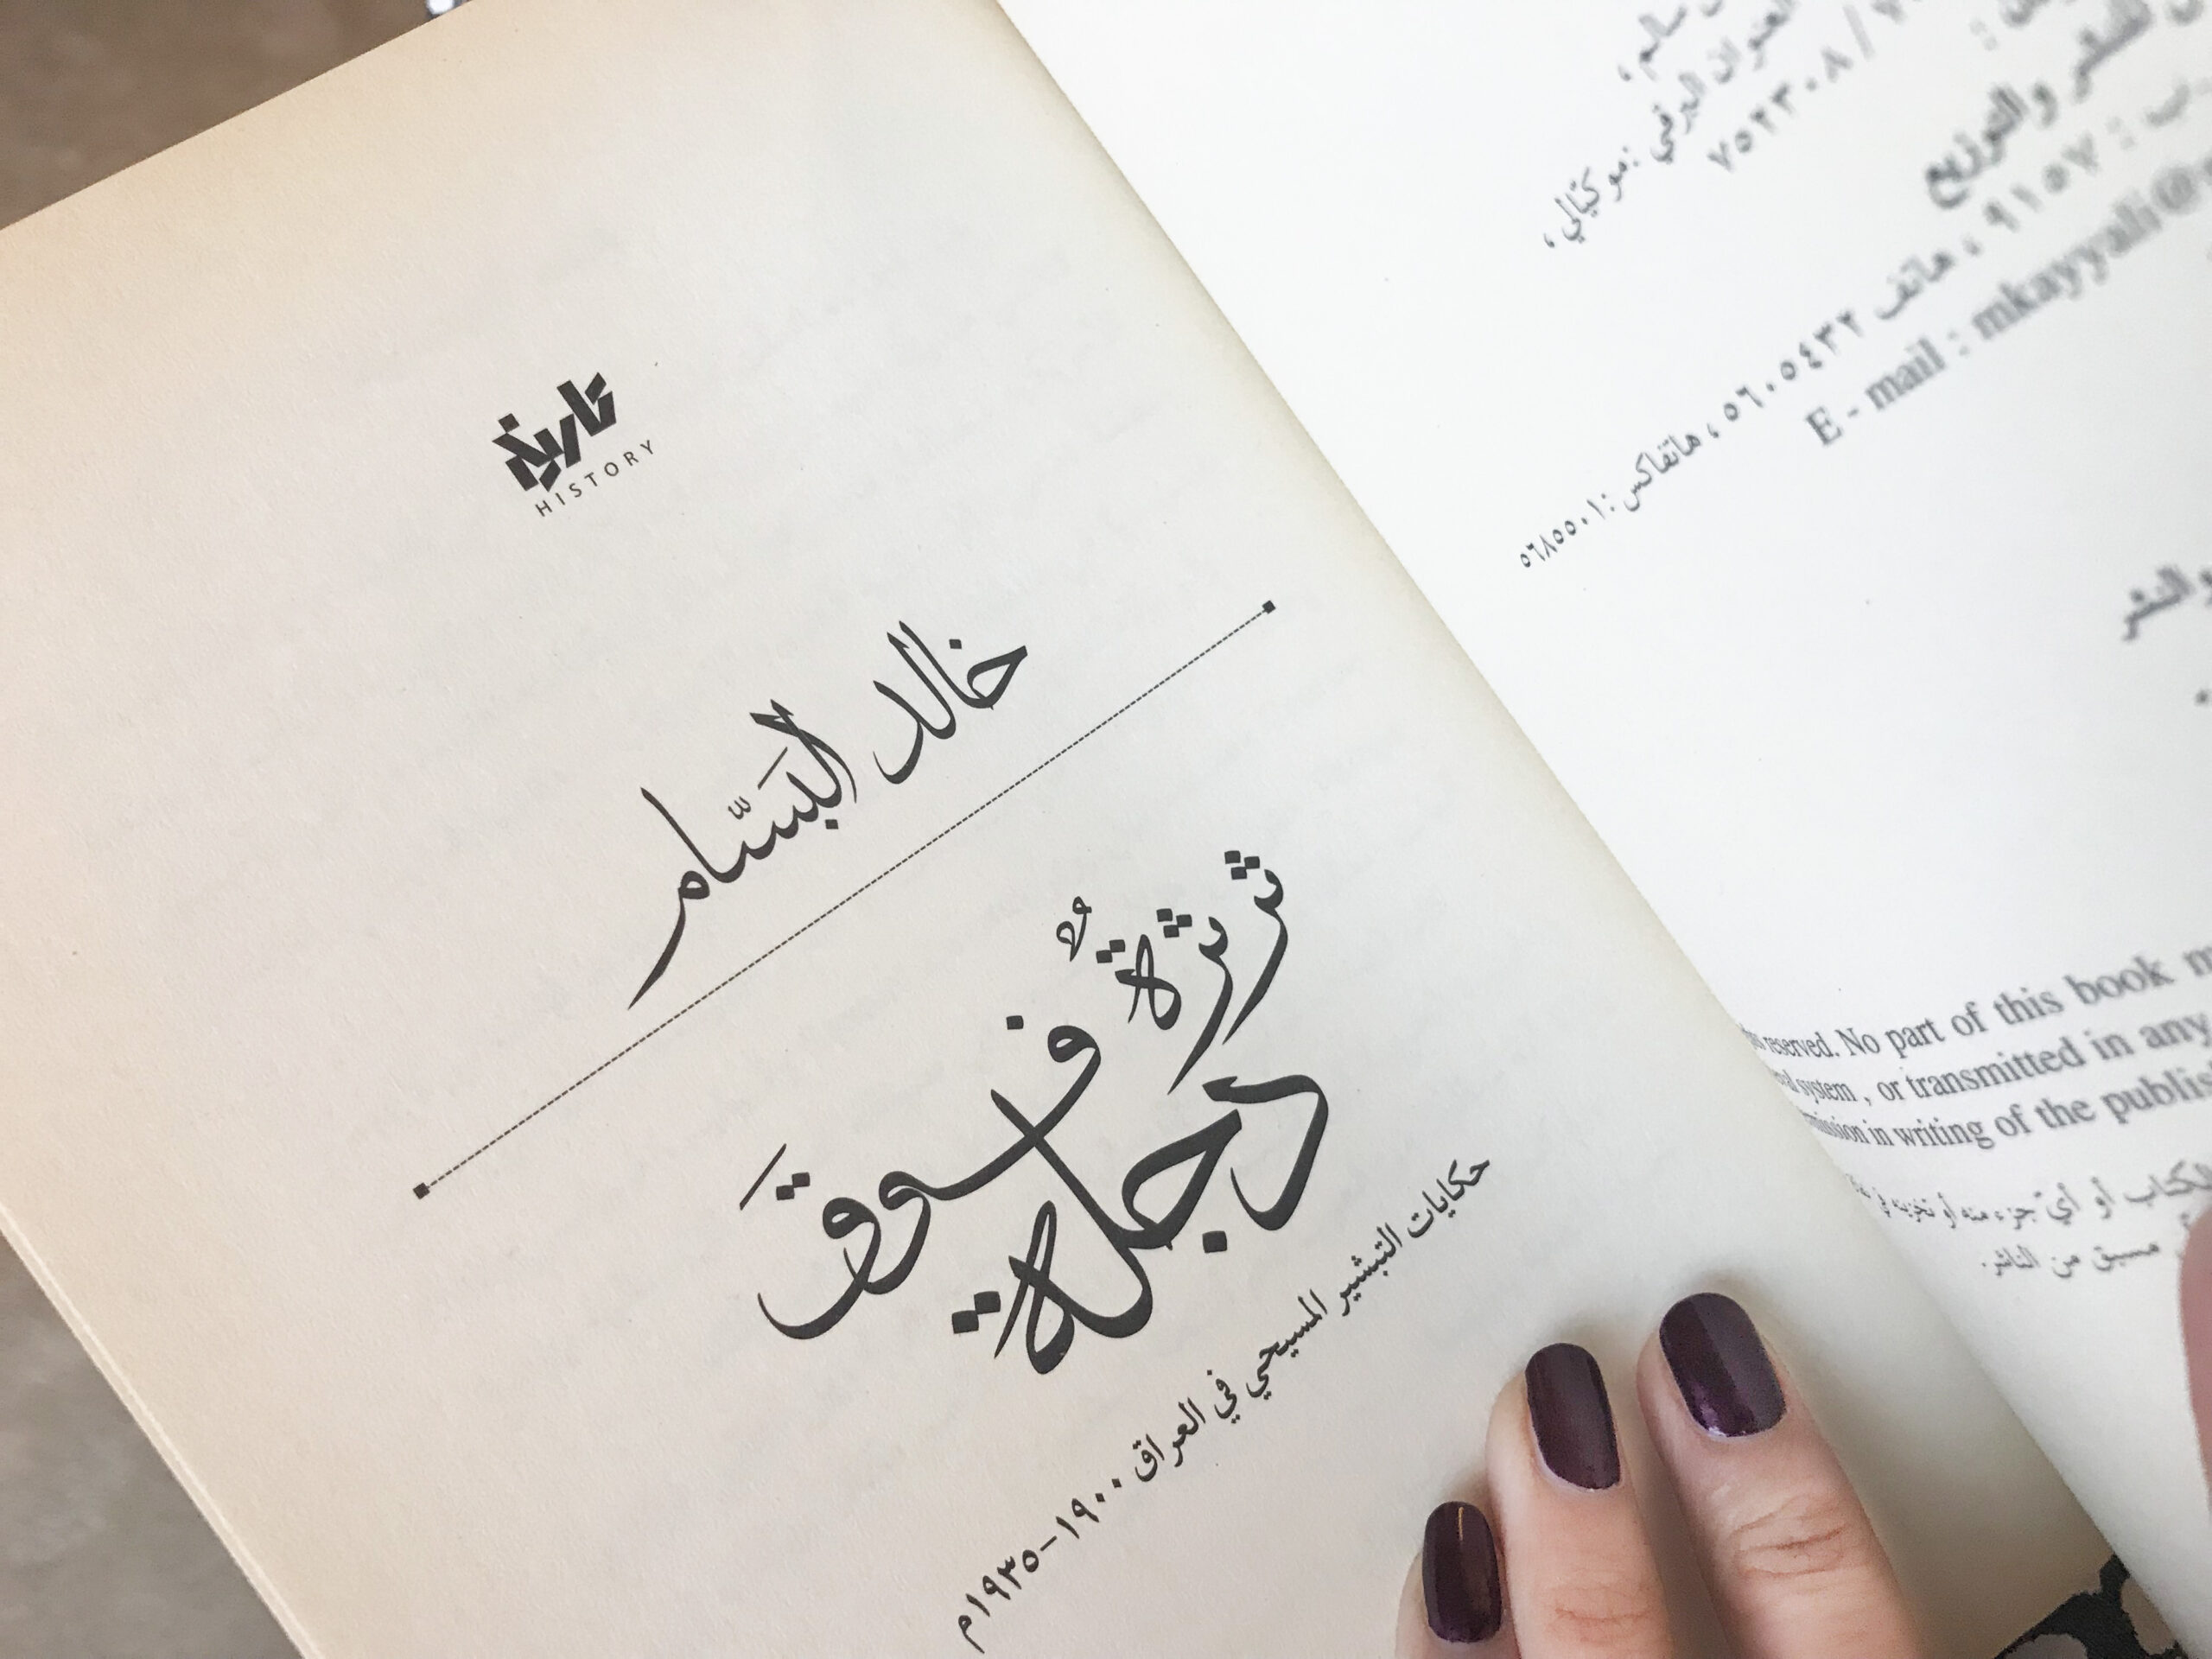 تاريخ
HISTORY
خالد البَسّام
ثرثرةٌ فوقَ
دجلة
حكايات التبشير المسيحي في العراق ١٩٠٠-١٩٣٥م
سالم،
العنوان البرقي: موكيّالي،
٧٥٢٣٠٨ /
للنشر والتوزيع
ب: ٩١٥٧، هاتف ٥٦٠٥٤٣٢، هاتفاكس: ٥٦٨٥٥٠١
E - mail : mkayyali@
والنشر
reserved. No part of this book
system , or transmitted in any
in writing of the
الكتاب أو أيّ جزء منه أو تخزينه في
مسبق من الناشر.